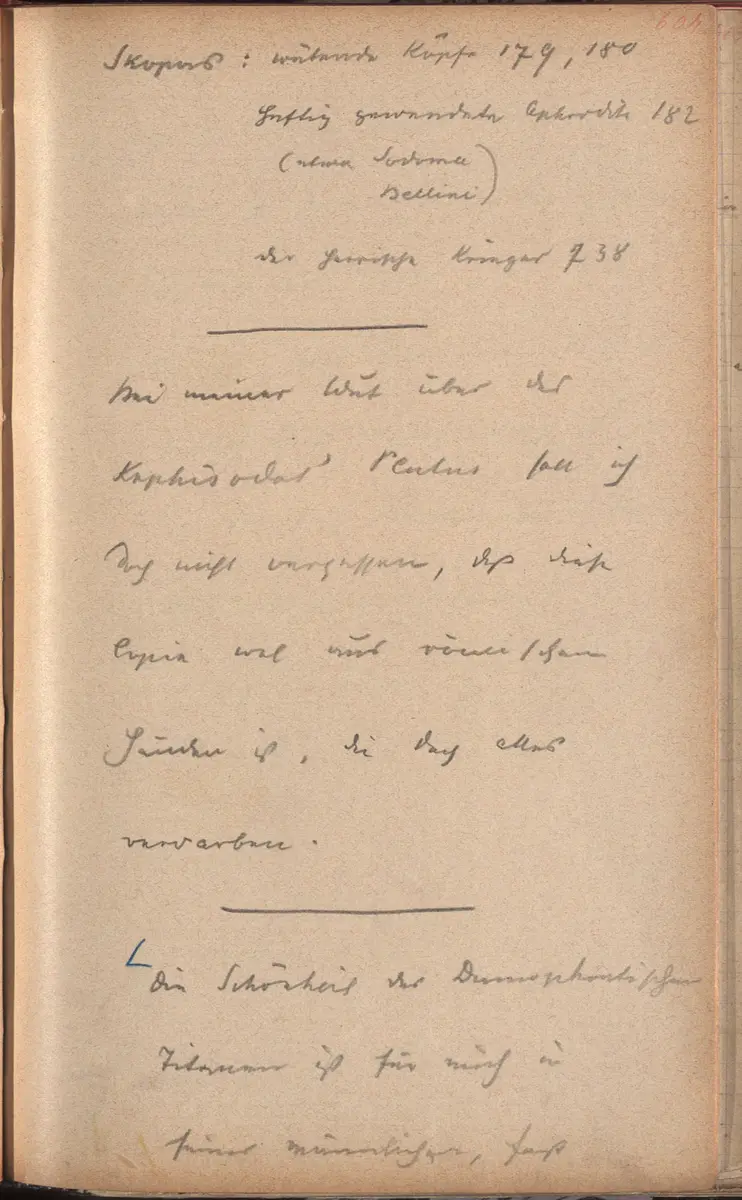 604
Skopas : wütende Köpfe 179, 180
heftig gewendete Aphrodite 182
(etwa Sodoma
Bellini)
der herrische Krieger 738
Bei meiner Wut über des
Kephisodot' Plutus soll ich
doch nicht vergessen, daß diese
Copie wol aus römischen
Händen ist, die doch alles
verdarben.
Die Schönheit des Damophontischen
Titanen ist für mich in
seiner männlichen, fast